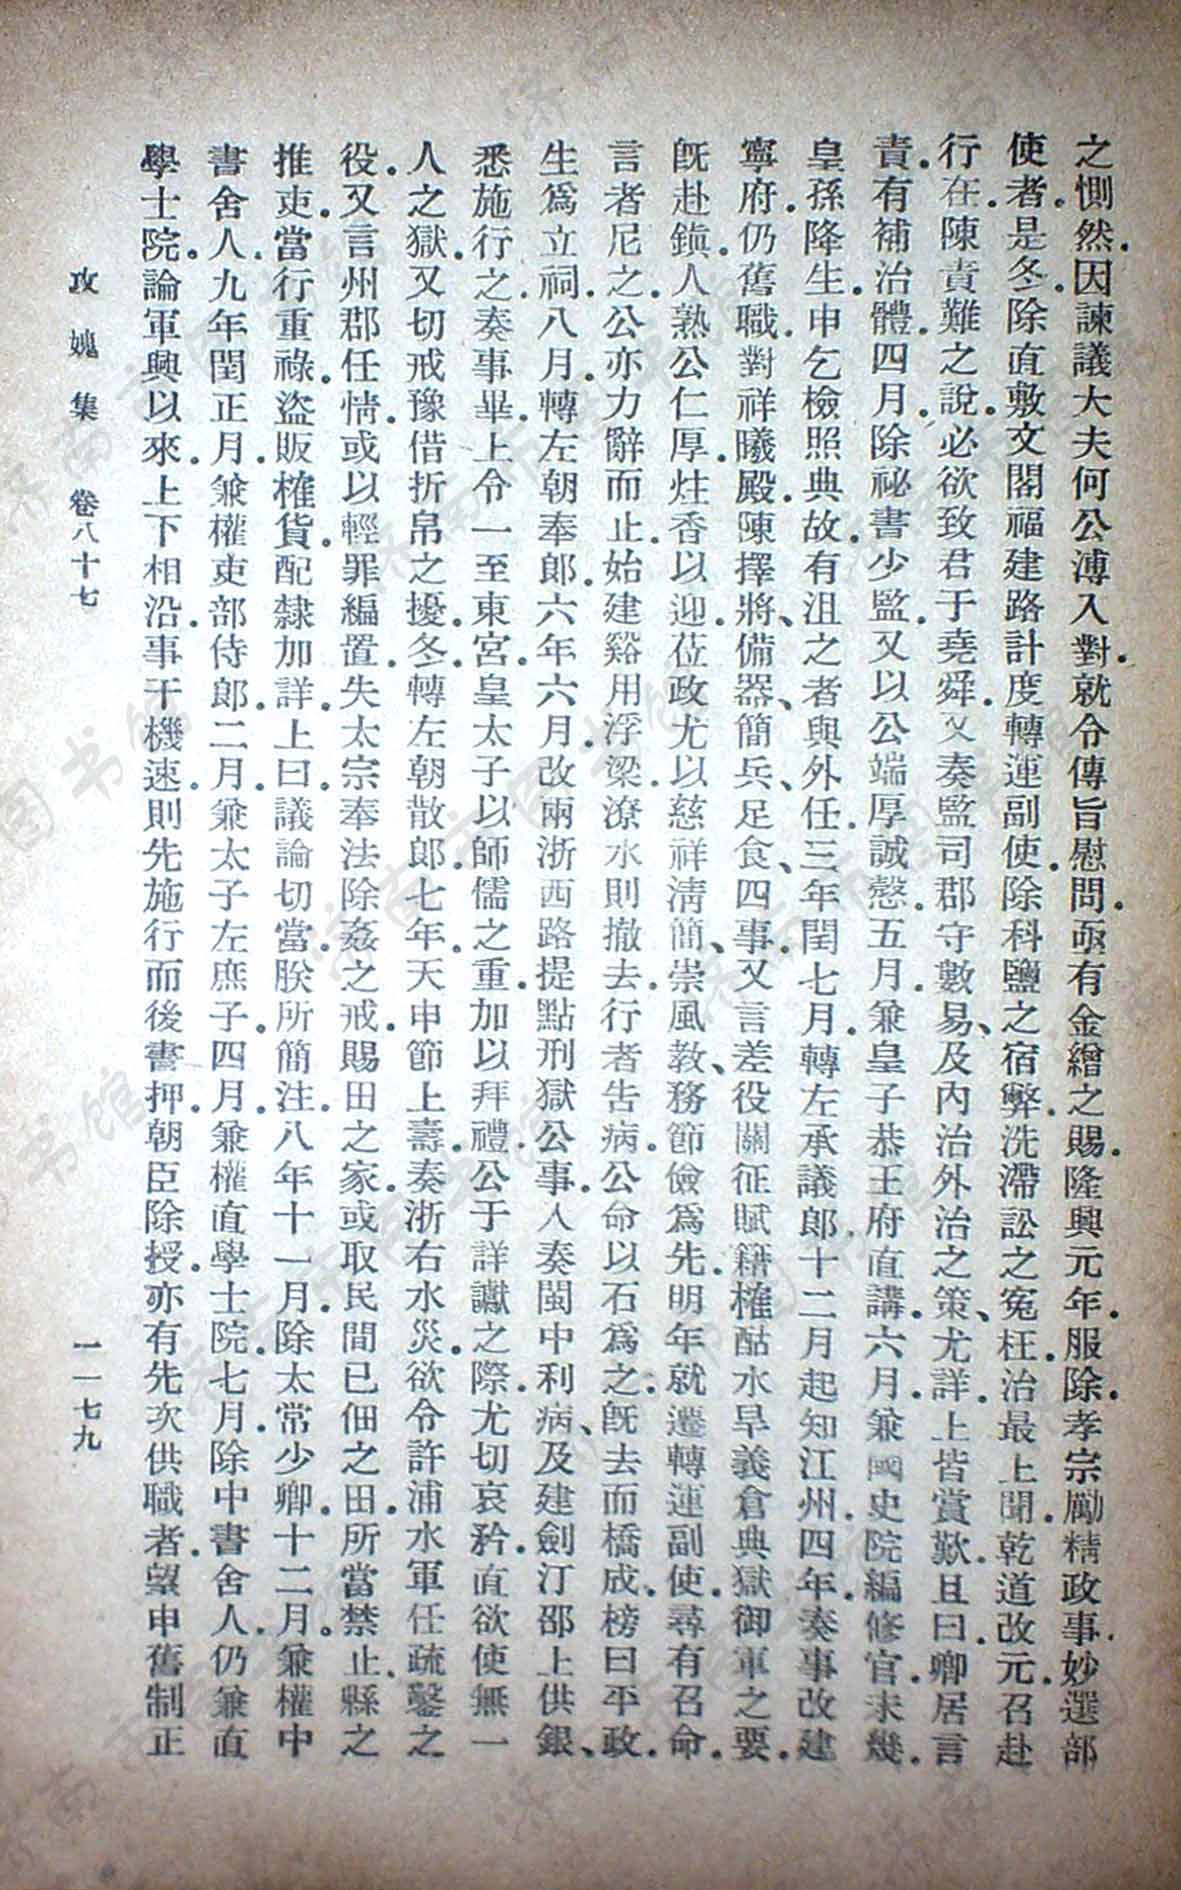 之惻然。因諫議大夫何公溥入對。就令傳旨慰問。亟有金繒之賜。隆興元年。服除。孝宗勵精政事。妙選部
使者。是冬。除直敷文閣福建路計度轉運副使。除科鹽之宿弊。洗滯訟之冤枉。治最上聞。乾道改元。召赴
行在。陳責難之說。必欲致君于堯舜。又奏監司郡守數易、及內治外治之策、尤詳。上皆賞歎。且曰。卿居言
責。有補治體。四月。除祕書少監。又以公端厚誠慤。五月。兼皇子恭王府直講。六月。兼國史院編修官。未幾。
皇孫降生。申乞檢照典故。有沮之者。與外任。三年閏七月。轉左承議郎。十二月起知江州。四年。奏事。改建
寧府。仍舊職。對祥曦殿。陳擇將、備器、簡兵、足食、四事。又言差役關征賦籍榷酤水旱義倉典獄御軍之要。
既赴鎮。人熟公仁厚。炷香以迎。莅政尤以慈祥清簡、崇風教、務節儉爲先。明年。就遷轉運副使。尋有召命。
言者尼之。公亦力辭而止。始建谿用浮梁。潦水則撤去。行者告病。公命以石爲之。既去而橋成。榜曰平政。
生爲立祠。八月。轉左朝奉郎。六年六月。改兩浙西路提點刑獄公事。入奏閩中利病、及建劍汀邵上供銀、
悉施行之。奏事畢。上令一至東宮。皇太子以師儒之重。加以拜禮。公于詳讞之際。尤切哀矜。直欲使無一
人之獄。又切戒豫借折帛之擾。冬。轉左朝散郎。七年。天申節上壽。奏浙右水災。欲令許浦水軍任疏鑿之
役。又言州郡任情。或以輕罪編置。失太宗奉法除姦之戒。賜田之家。或取民間已佃之田。所當禁止、縣之
推吏。當行重祿。盜販榷貨。配隸加詳。上曰。議論切當。朕所簡注。八年十一月。除太常少卿。十二月。兼權中
書舍人。九年閏正月。兼權吏部侍郎。二月。兼太子左庶子。四月。兼權直學士院。七月。除中書舍人。仍兼直
學士院。論軍興以來。上下相沿。事干機速。則先施行而後書押。朝臣除授。亦有先次供職者。望申舊制。正
攻媿集 卷八十七
一一七九